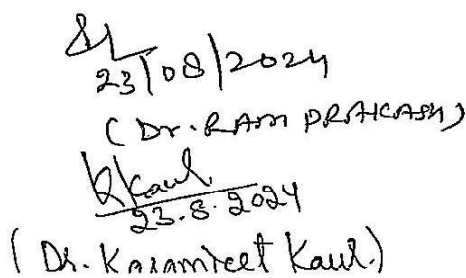 23/08/2024
(Dr. RAM PRAKASH)
KKaur
23.8.2024
(Dr. Karamjeet Kaur.)